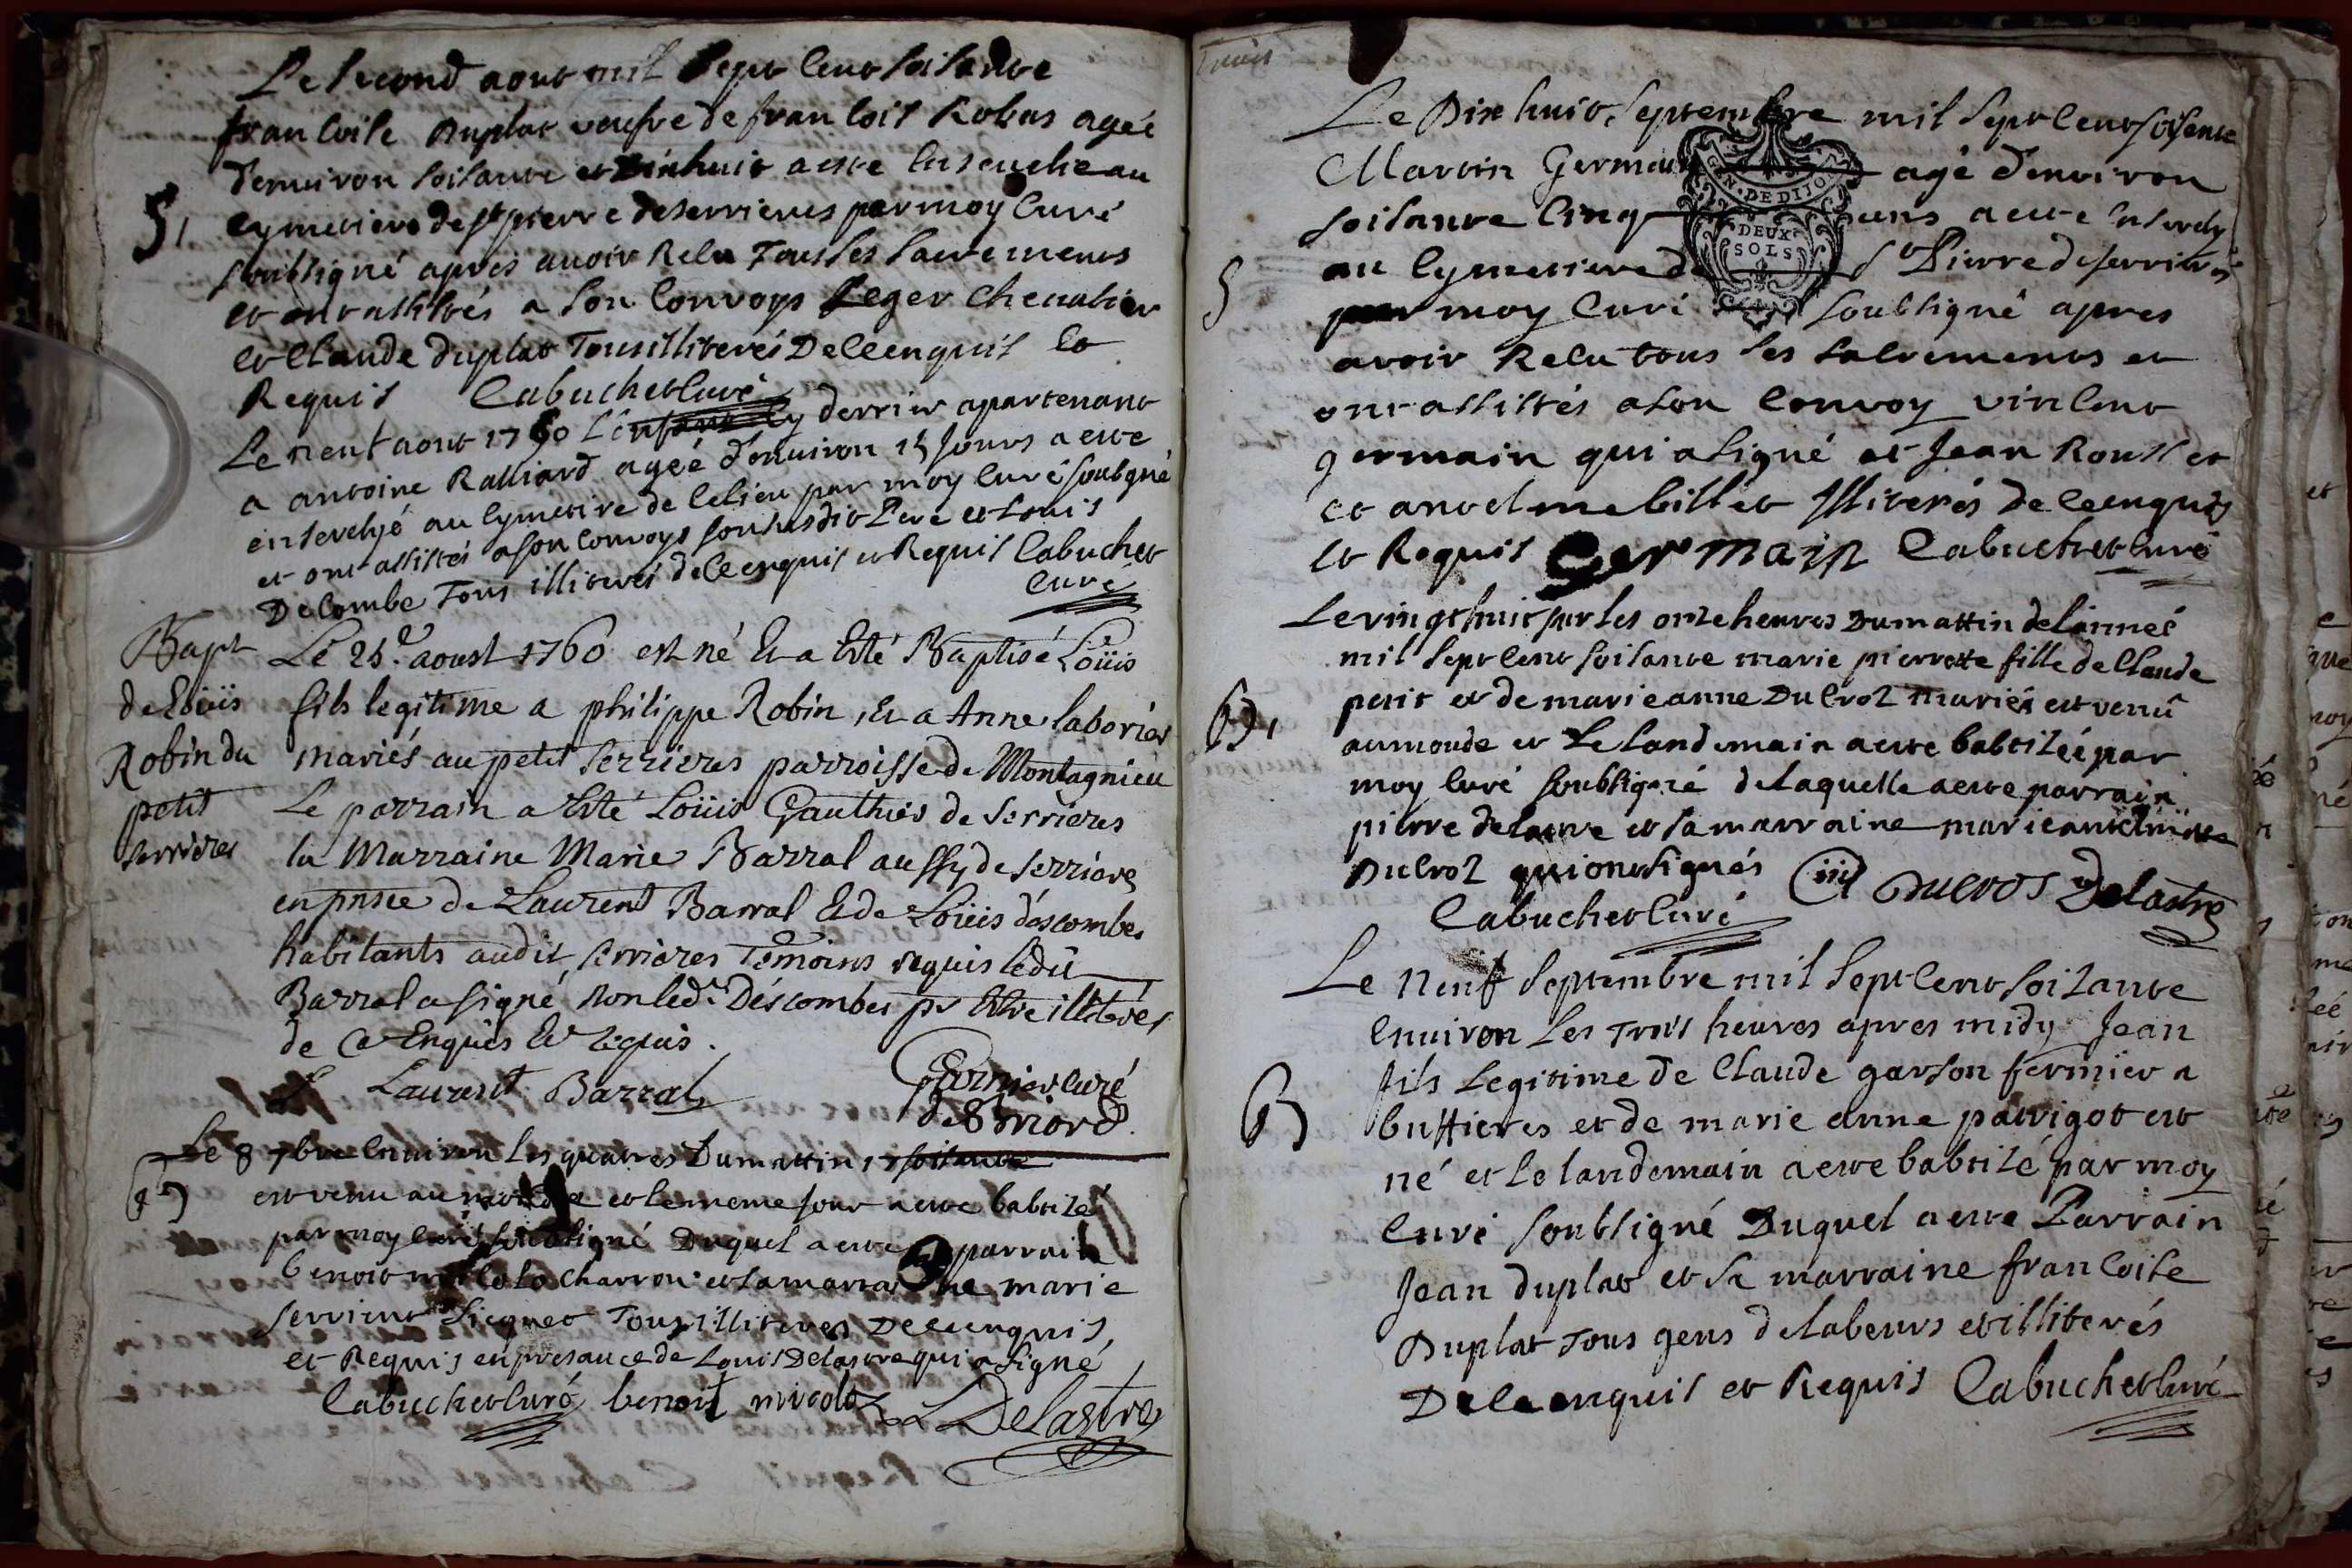 Le second aout mil sept cent soisante
francoise Duplat veufve de francois Robas agée
d'environ soisante et dixhuit a este enseuelie au
cymetiere de st pierre de serrieres par moy curé
soubsigné apres auoir Relu Tous les sacrements
et ont assistés a son Convoys Leger Cheualier
et Claude duplat Tous illiterés De ce enquis et
Requis Cabuchet Curé
S,
Le neuf aout 1760 L'enfant cy derrier apartenant
a antoine Ralliard agéé d'enuiron 15 jours a este
enseveljé au cymetire de ce lieu par moy curé soubsgné
et ont assistés a son convoys son susdit Pere et Louis
Decombe Tous illiterés de ce enquis et Requis Cabuchet
Curé
Bapt
de Loüis
Robin du
petit
serrieres
Le 25e aoust 1760 est né Et a Esté Baptisé Loüis
fils legitime a philippe Robin, Et a Anne laborier
mariés au petit Serrieres parroisse de Montagnieu
Le parrain a Esté Loüis Gauthier de Serrieres
la Marraine Marie Barral aussy de Serriere
en pnsce de Laurent Barral Et de Loüis déscombes
habitants audit serrieres Témoins requis ledit
Barral a signé Non led. Déscombes pr Estre illiterés
de Ce Enquis Et requis.
L Laurent Barral
curé
de Briord
Le 8 7bre Enuiron Les quatres Du mattin 17 soisante
est venu au monde et le meme jour a este babtizé
par moy curé soubsigné Duquel a este parrain
benoit Charron et sa marraine marie
servient Tous illiteres De ce enquis
et Requis en presance de Louis Delastre qui a signé
Cabuchet Curé benoit Delastre
Le Dix huit Septembre mil Sept Cent soisente
Martin Germain agé d'environ
soisante Cinq ans a este
au Cymetiere de St Pierre de serrieres
par moy Curé soubsigné apres
avoir Relu tous les sacrements et
ont assistés a son Convoy vincent
germain qui a signé et Jean Rousset
et antelme billet Illiterés de ce enquis
et Requis Germain Cabuchet curé
S
GEN. DE DIJON
DEUX
SOLS
Le vingt huit sur les onze heures Du mattin de l'année
mil Sept Cent soisante marie pierrette fille de Claude
petit et de marie anne Ducroz mariés est venu
au monde et Le Landemain a este babtizéé par
moy curé soubsigné de laquelle a este parrain
pierre delastre et sa marraine marie antelmette
Ducroz qui ont signés ducros Delastre
Cabuchet Curé
Le Neuf Septembre mil Sept Cent soizante
Enuiron Les Trois heures apres midy Jean
fils Legitime de Claude garson fermier a
buffieres et de marie anne parrigot est
né et Le landemain a este babtizé par moy
Curé soubsigné Duquel a este Parrain
Jean duplat et sa marraine francoise
Duplat Tous gens de labeurs et illiterés
De ce enquis et Requis Cabuchet Curé
B